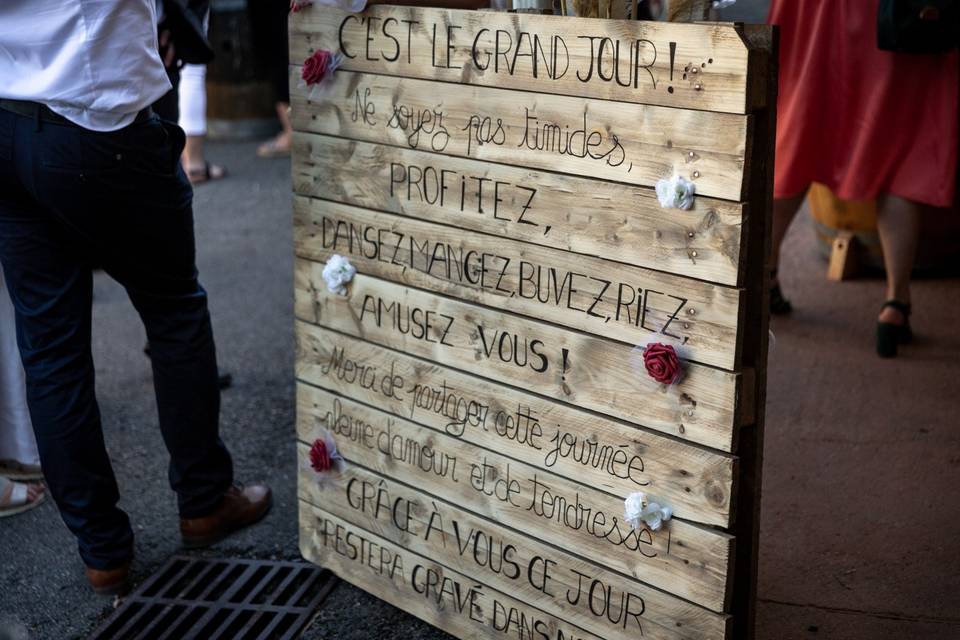 C'EST LE GRAND JOUR !
Ne soyez pas timides,
PROFiTEZ,
DANSEZ, MANGEZ, BUVEZ, RiEZ,
AMUSEZ VOUS !
Merci de partager cette journée
pleine d'amour et de tendresse !
GRÂCE À VOUS CE JOUR
RESTERA GRAVÉ DANS